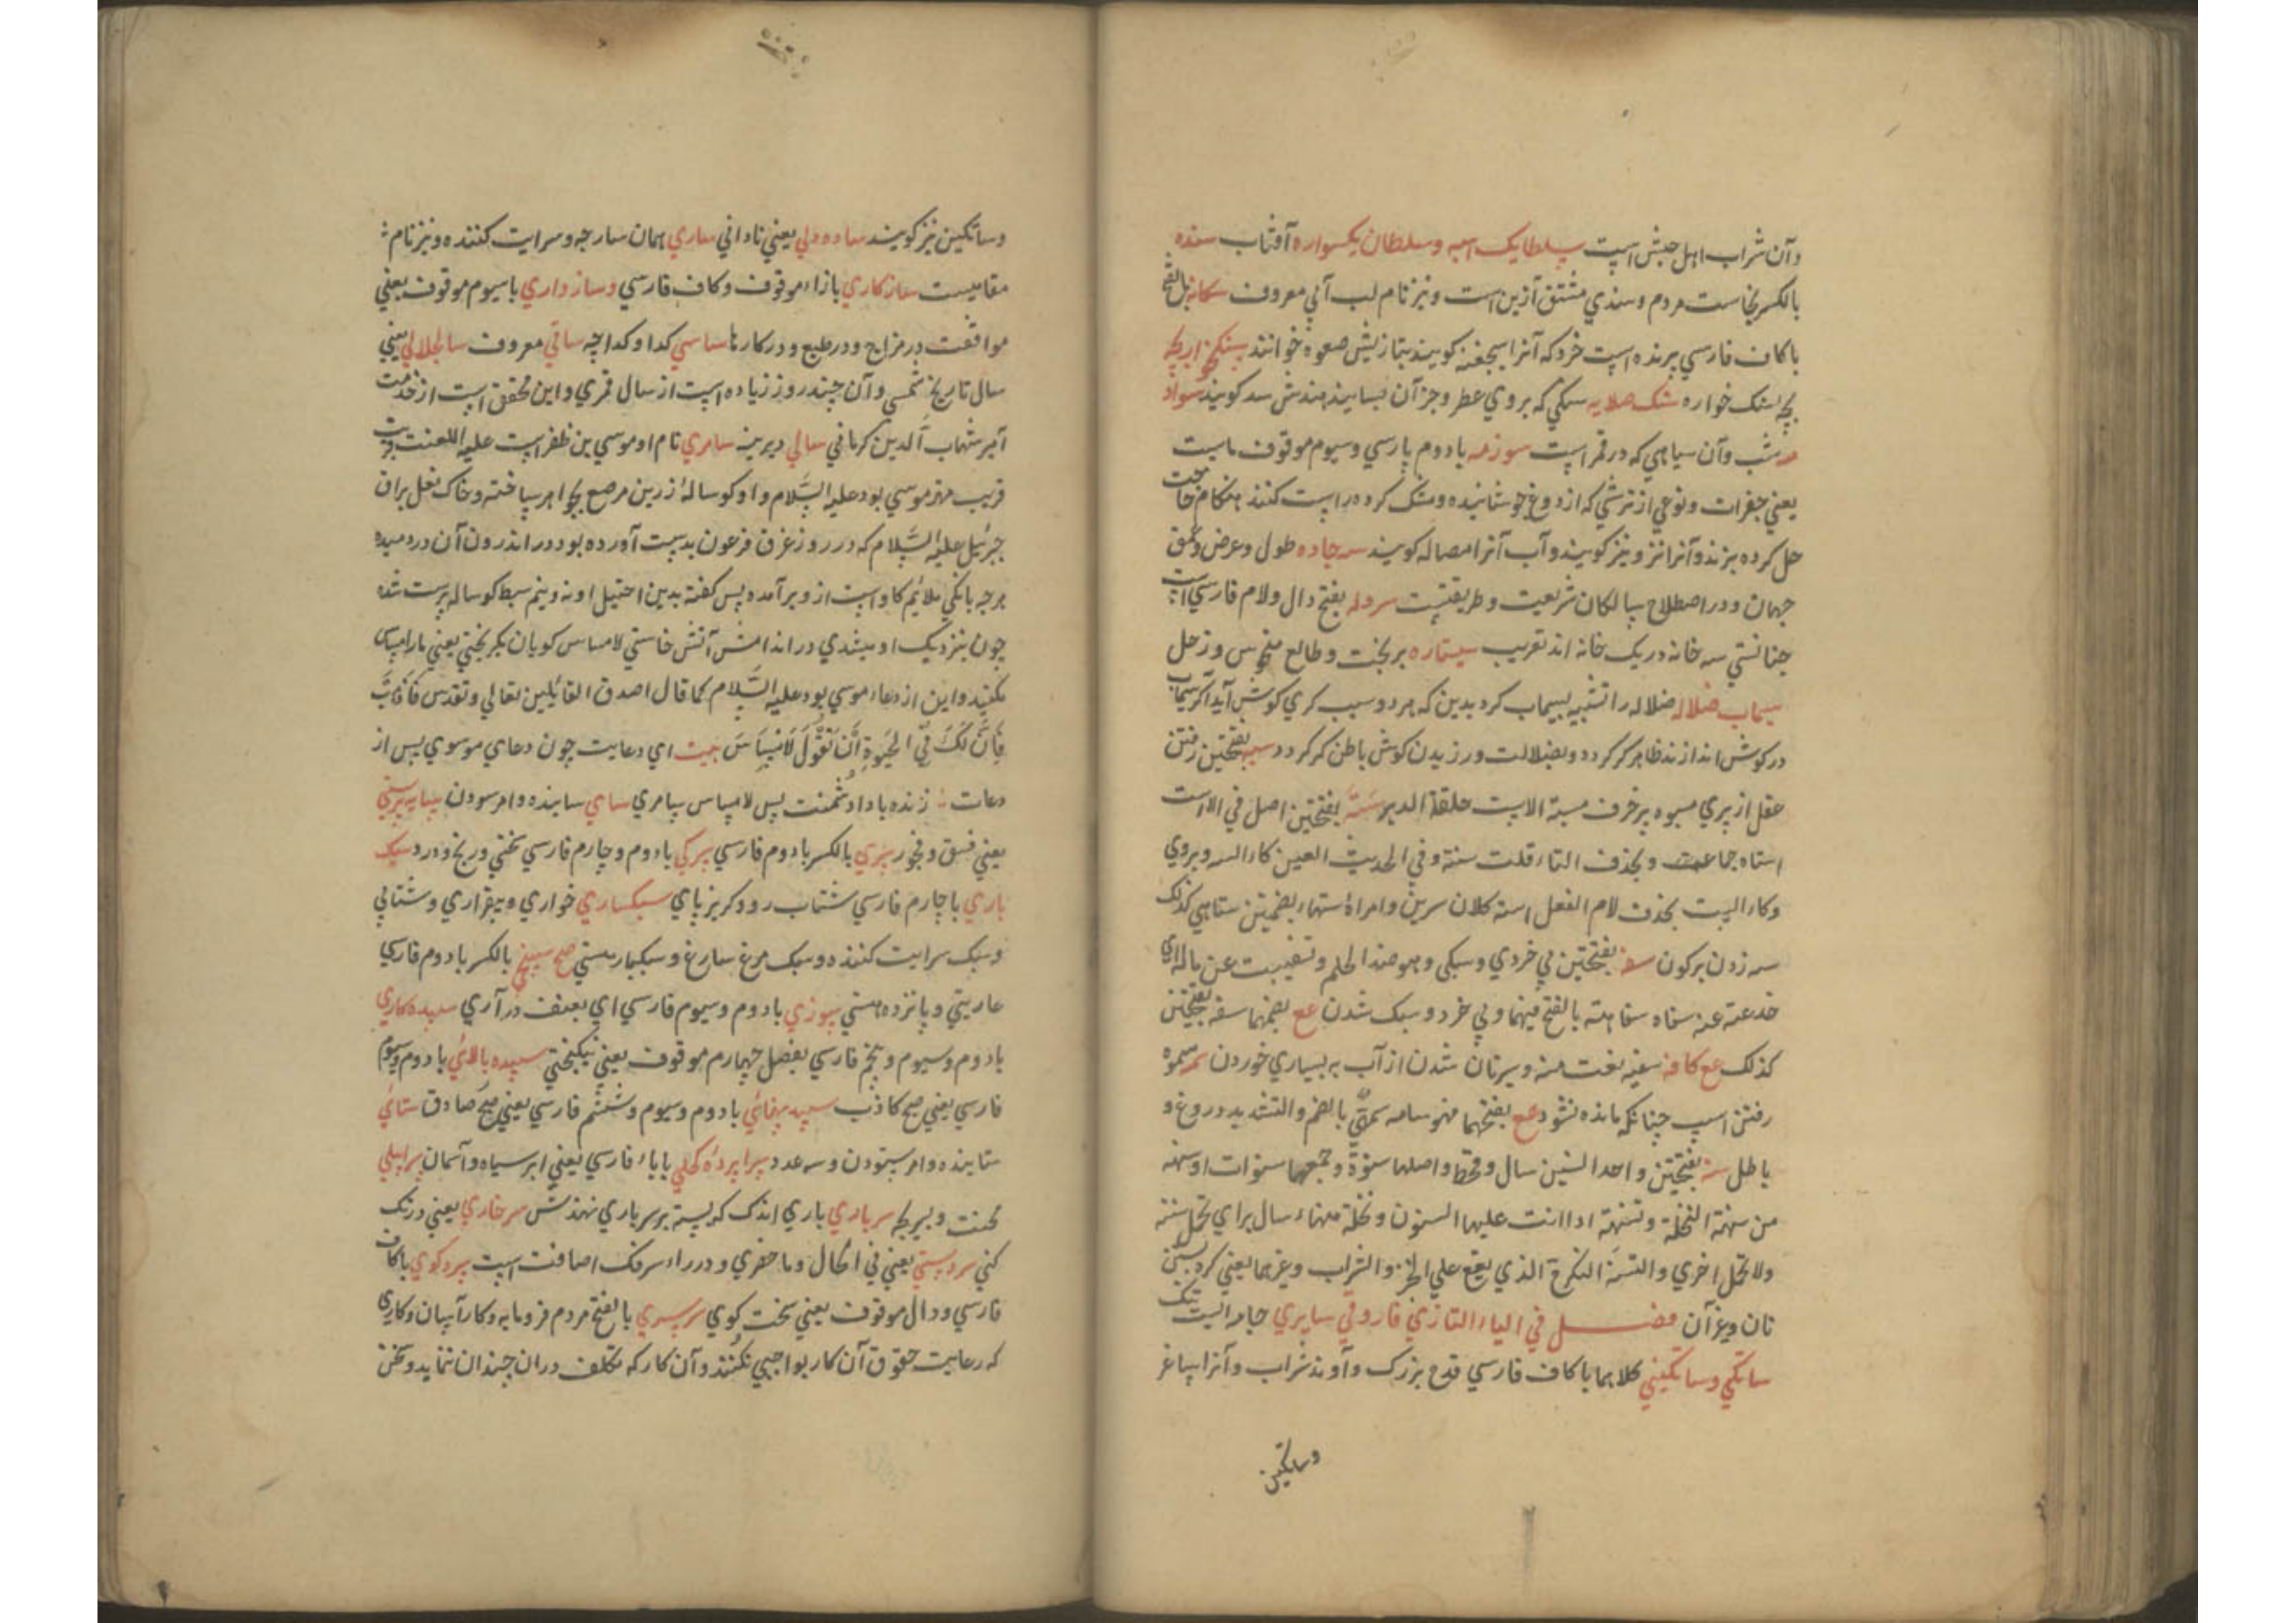 وآن شراب اهل حبش است سلطان یک اسبه وسلطان یکسواره آفتاب سنده
بالکسر بخاست مردم وسندي مشتق ازین است ونیز نام لب آبي معروف
باکاف فارسي پرنده است خرد که آنرا سیجغنه کویند بتازیش صعوه خوانند
بچه سنک خواره سنک صلایه سنکي که بروي عطر وجز آن بسایند هندش سد کویند سواد
شب وآن سیاهي که در قمر است سوزمه بادوم پارسي وسیوم موقوف ماست
یعني جغرات ونوعي از ترشي که از دوغ جوشانیده وخشک کرده راست کنند هنکام حاجت
حل کرده بزند وآنرا نیز کویند وآب آنرا مصاله کویند سه جاده طول وعرض وعمق
جهان ودر اصطلاح سالکان شریعت وطریقتست سردله بفتح دال ولام فارسي است
چنانستي سه خانه در یک خانه اند تقریب سیتاره بربخت وطالع منحوس وزحل
سیماب ضلاله ضلاله را تشبیه بسیماب کرد بدین که هر دو سبب کري کوش آید اکر سیماب
در کوش اندازند ظاهر کر کردد وبضلالت ورزیدن کوش باطن کر کردد بفتحتین رفتن
عقل از پیري مسبوه پیر خرف سبة الاست حلقة الدبر سته بفتحتین اصل في الاست
استاه جماعت وبحذف التاء قلت سنة وفي الحدیث العین کاء السه ویروي
وکاء الست بحذف لام الفعل استه کلان سرین وامراة ستهاء بضمتین ستاهي کذلک
سه زدن بر کون سفه بفتحتین بي خردي وسبکي وهو ضد الحلم وتسفیت عن ماله اي
خدعته عنه سفاه سفاهته بالفتح فیهما وبي خرد وسبک شدن عع بضمهما سفه بفتحتین
کذلک عع کافه سفیه نعت منه وسیرناں شدن از آب به بسیاري خوردن سمه سموه
رفتن اسپ چنانکه مانده نشود عع بفتحهما فهو سامه سمهي بالضم والتشدید دروغ و
باطل سنه بفتحتین واحد السنین سال وقحط واصلها سنوة وجمعها سنوات اوسنهه
من سنهت النخلة وتسنهت اذا اتت علیها السنون ونخلة سنهاء سال براي تحمل سنة
ولا تحمل اخري والتسنه التکرج الذي یقع علي الخبز والشراب وغیرهما یعني کره بستن
نان وغیر آن فصل في الیاء التازي فاروقي سابري جامه الیست تنک
ساتکي وساتکیني کلاهما باکاف فارسي قدح بزرک وآوند شراب وآنرا ساغر
وساتکین
وساتکین نیز کویند ساده دلي یعني ناداني ساري همان سارجه وسرایت کننده ونیز نام
مقامیست سازکاري بازاء موقوف وکاف فارسي وسازواري باسیوم موقوف یعني
موافقت در مزاج ودر طبع ودر کارها ساسي کدا وکداچه ساقي معروف سالجلالي یعني
سال تاریخ شمسي وآن چند روز زیاده است از سال قمري واین محقق است از خدمت
امیر شهاب الدین کرماني سالي دیرینه سامري نام او موسي بن ظفر است علیه اللعنت
قریب مهتر موسي بود علیه السلام واو کوساله زرین مرصع بجواهر ساخته وخاک نعل براق
جبرئیل علیه السلام که در روز غرق فرعون بدست آورده بود در اندرون آن دردمیده
هرچه بانکي ملائم کاو است ازو برآمد پس کفته بدین احتیل او نه ونیم سبط کوساله پرست شده
چون بنزدیک او میشدي در اندامش آتش خاستي لامساس کویان بکریختي یعني مارا مساس
مکنید واین از دعاء موسي بود علیه السلام کما قال اصدق القائلین تعالي وتقدس فاذهب
فان لک في الحیوة ان تقول لامساس بیت اي دعایت چون دعاي موسوي پس از
دعات زنده باد ا دشمنت پس لامساس سامري ساي ساینده وامر سودن سایه پرستي
یعني فسق وفجور سپري بالکسر بادوم فارسي سپرکي بادوم وچارم فارسي سختي ورنج ودرد سبک
پاري باچارم فارسي شتاب رو وکریزپاي سبکساري خواري وبیقراري وشتابي
وسبک سرایت کننده وسبک مرغ سارغ وسبکبار مستي صح سپنجي بالکسر بادوم فارسي
عاریتي وپانزده مستي سپوزي بادوم وسیوم فارسي اي بعنف درآري سپیده کاري
بادوم وسیوم وپنجم فارسي بفصل چهارم موقوف یعني نیکبختي سپیده بالائي بادوم وسیوم
فارسي یعني صبح کاذب سپید پهنائي بادوم وسیوم وششم فارسي یعني صبح صادق ستائي
ستاینده وامر ستودن وسه عدد سراپرده کحلي باباء فارسي یعني ابر سیاه وآسمان
محنت سرباري باري اندک که پسته بر سر باري نهندش سرخاري یعني درنک
کني سردستي یعني في الحال وما حضري ودر راء سرفک اضافت است سردکوي باکاف
فارسي ودال موقوف یعني سخت کوي سرسري بالفتح مردم فرومایه وکار آسان وکاري
که رعایت حقوق آن کار بواجبي نکنند وآن کار که تکلف دران چندان ننماید وسخن